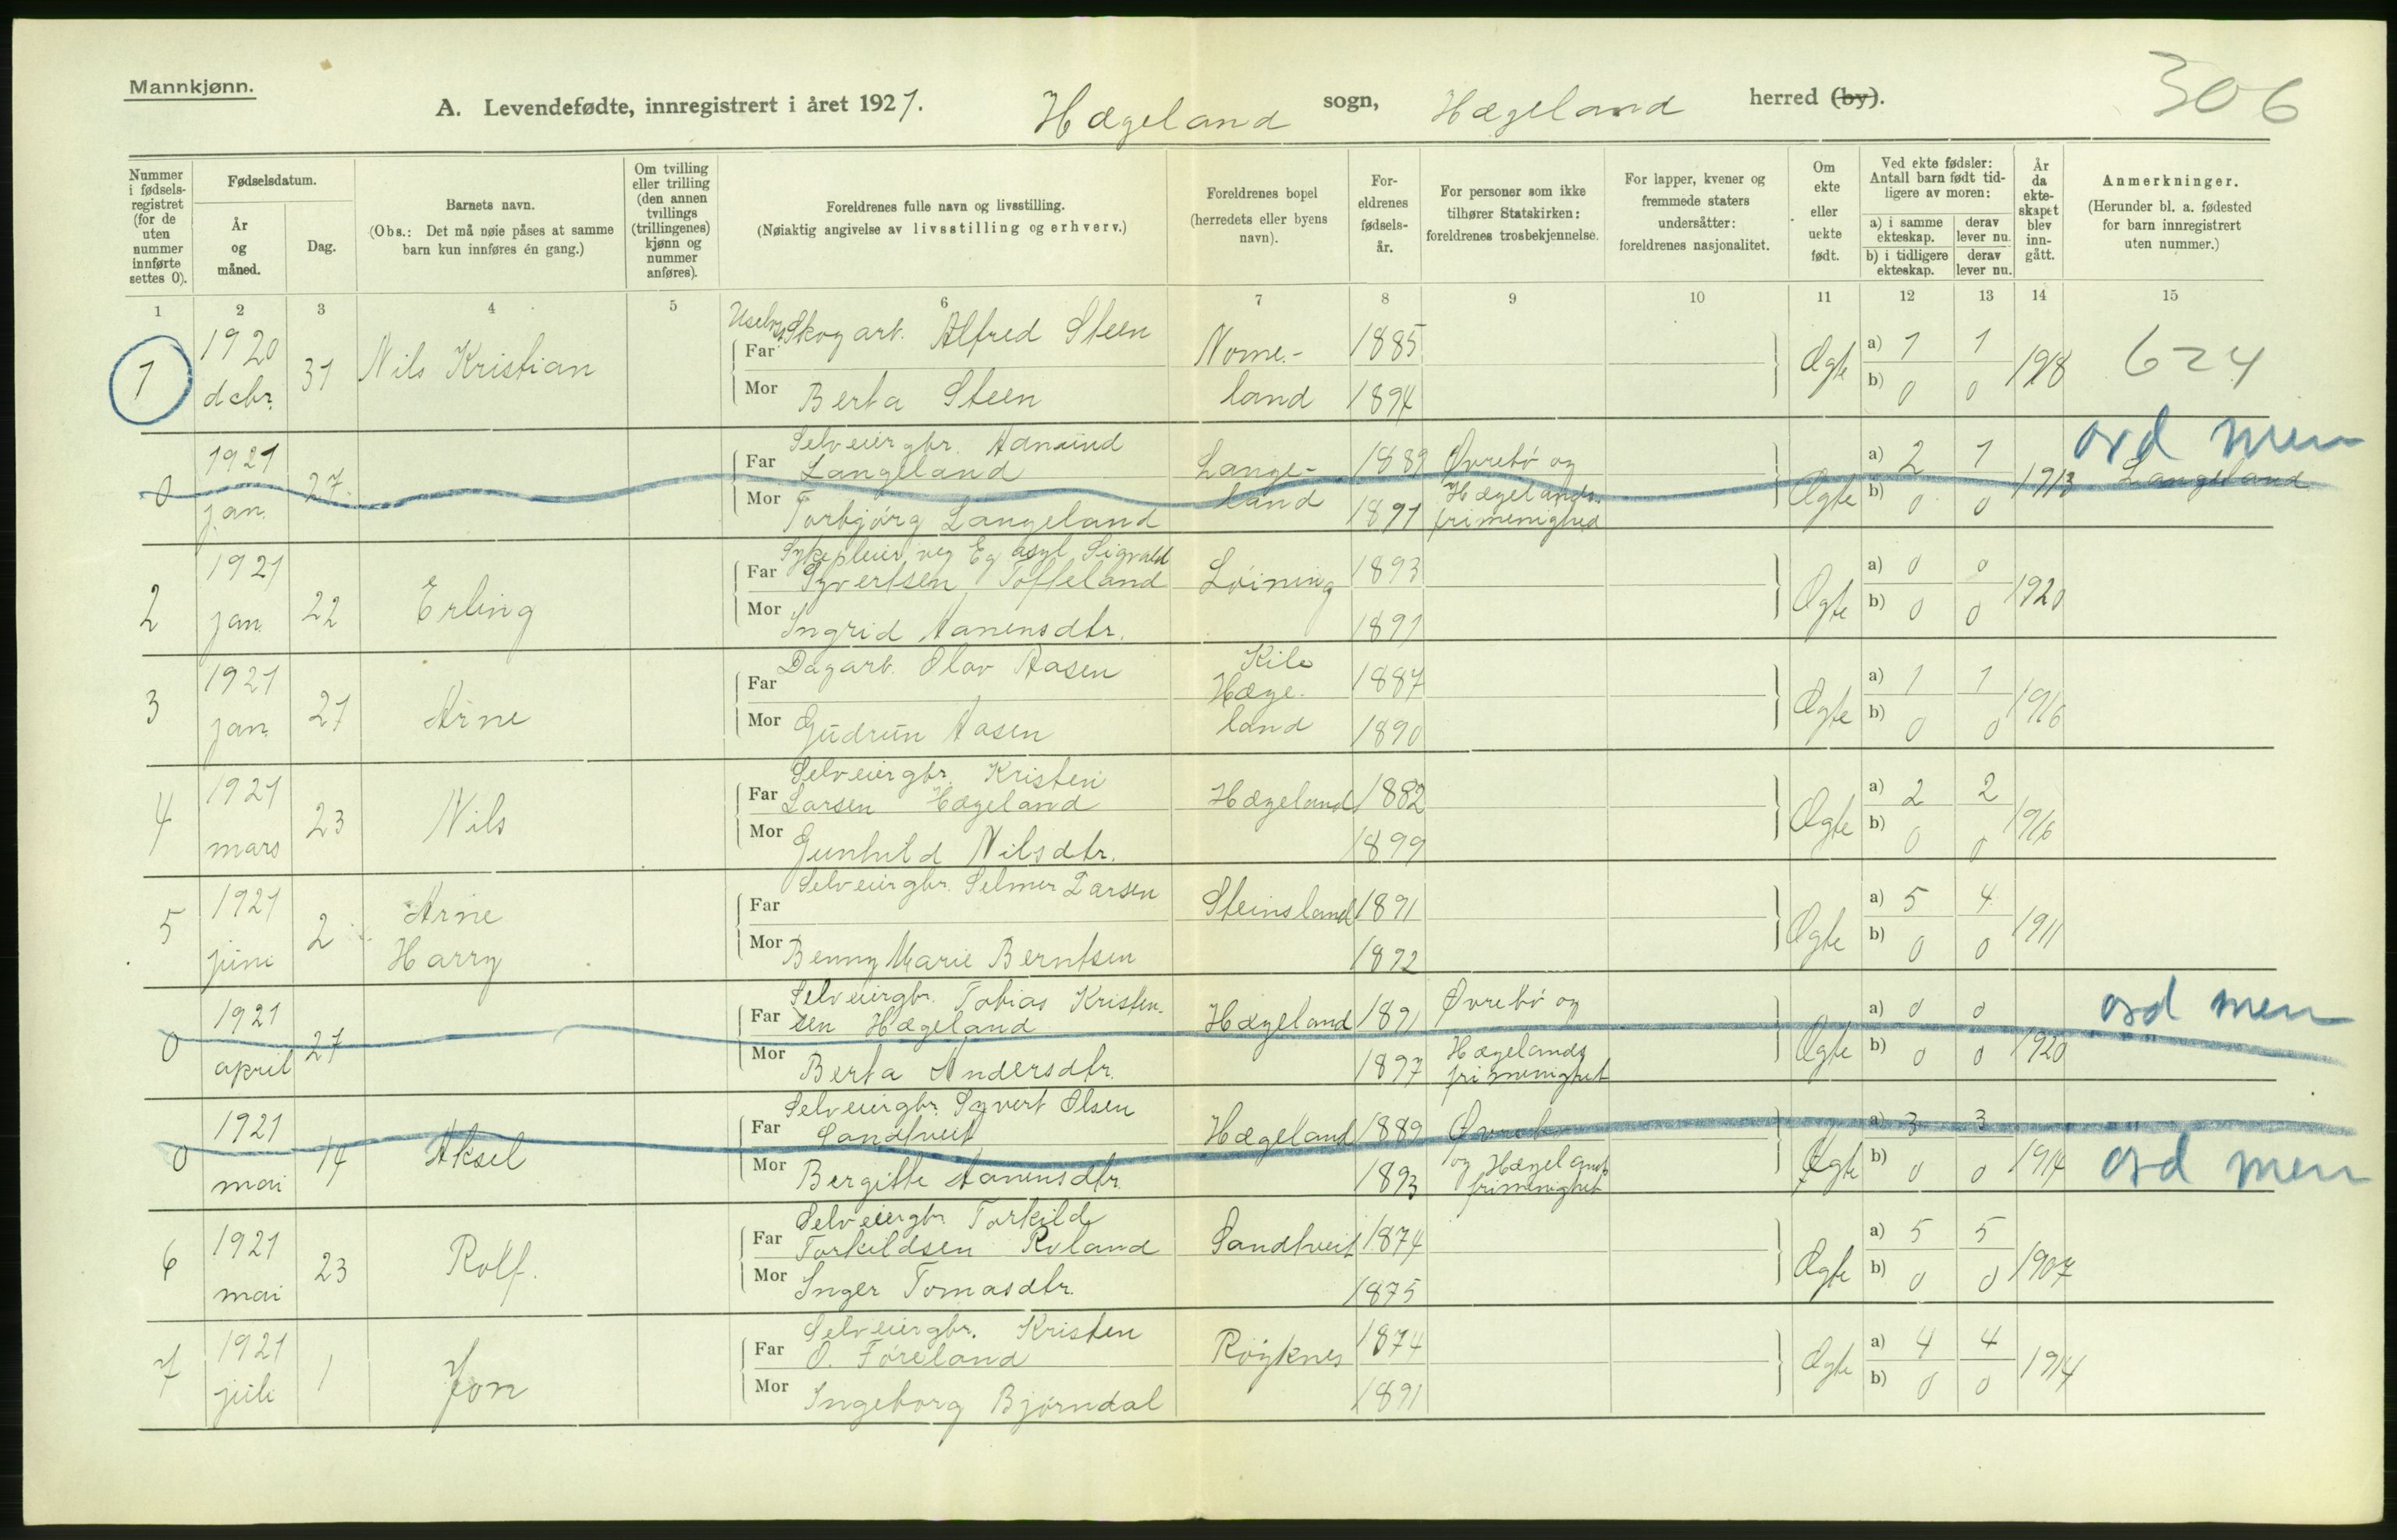 Mannkjønn.
A. Levendefødte, innregistrert i året 1921. Hægeland sogn, Hægeland herred (by).
306
Nummer i fødsels-registret (for de uten nummer innførte settes 0).
Fødselsdatum.
År og måned.
Dag.
Barnets navn.
(Obs.: Det må nøie påses at samme barn kun innføres én gang.)
Om tvilling eller trilling (den annen tvillings (trillingenes) kjønn og nummer anføres).
Foreldrenes fulle navn og livsstilling.
(Nøiaktig angivelse av livsstilling og erhverv.)
Foreldrenes bopel (herredets eller byens navn).
For-eldrenes fødsels-år.
For personer som ikke tilhører Statskirken: foreldrenes trosbekjennelse.
For lapper, kvener og fremmede staters undersåtter: foreldrenes nasjonalitet.
Om ekte eller uekte født.
Ved ekte fødsler: Antall barn født tid-ligere av moren:
a) i samme ekteskap. derav lever nu.
b) i tidligere ekteskap. derav lever nu.
År da ekte-skapet blev inn-gått.
Anmerkninger.
(Herunder bl. a. fødested for barn innregistrert uten nummer.)
1 2 3 4 5 6 7 8 9 10 11 12 13 14 15
1 1920 debr. 31 Nils Kristian
Far Skogarb. Alfred Steen Nome- 1885
Mor Berta Steen land 1894
Ægte a) 1 1 b) 0 0 1918 624
0 1921 jan. 27
Far Selveiergbr. Aanund Langeland Lange- 1889 Øvrebö og
Mor Torbjörg Langeland land 1891 Hægelands frimenighed
Ægte a) 2 1 b) 0 0 1913 Langeland
ord men
2 1921 jan. 22 Erling
Far Sykepleier ved Eg asyl Sigvald Syvertsen Toffeland Löining 1893
Mor Ingrid Aanensdtr. 1891
Ægte a) 0 0 b) 0 0 1920
3 1921 jan. 21 Arne
Far Dagarb. Olav Aasen Kile Hæge- 1887
Mor Gudrun Aasen land 1890
Ægte a) 1 1 b) 0 0 1916
4 1921 mars 23 Nils
Far Selveiergbr. Kristen Larsen Hægeland Hægeland 1882
Mor Gunhild Nilsdtr. 1899
Ægte a) 2 2 b) 0 0 1916
5 1921 juni 2 Arne Harry
Far Selveiergbr. Selmer Larsen Steinsland 1891
Mor Benny Marie Berntsen 1892
Ægte a) 5 4 b) 0 0 1911
0 1921 april 27
Far Selveiergbr. Tobias Kristen-sen Hægeland Hægeland 1891 Øvrebö og
Mor Berta Andersdtr. 1897 Hægelands frimenighet
Ægte a) 0 0 b) 0 0 1920
ord men
0 1921 mai 14 Aksel
Far Selveiergbr. Syvert Olsen Sandtveit Hægeland 1889 Øvrebö
Mor Bergitte Aanensdtr. 1893 og Hægelands frimenighet
Ægte a) 3 3 b) 0 0 1914
ord men
6 1921 mai 23 Rolf.
Far Selveiergbr. Torkild Torkildsen Roland Sandtveit 1874
Mor Inger Tomasdtr. 1875
Ægte a) 5 5 b) 0 0 1907
7 1921 juli 1 Jon
Far Selveiergbr. Kristen O. Föreland Röyknes 1874
Mor Ingeborg Björndal 1891
Ægte a) 4 4 b) 0 0 1914